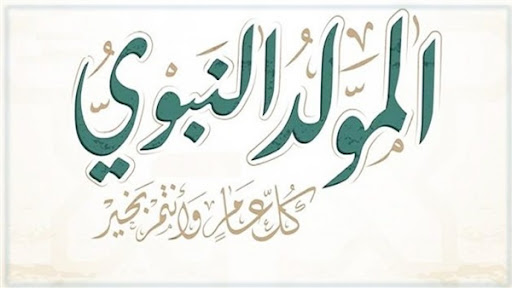 المَولدُ النَبَوي
كُل عَامٍ وَأنتُم بِخَيرْ